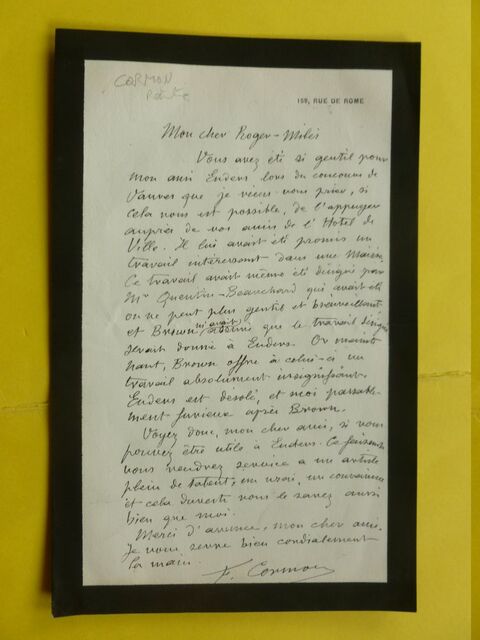 CORMON
159, RUE DE ROME
Mon cher Roger-Milès
Vous avez été si gentil pour
mon ami Enders lors du concours de
Vanves que je viens vous prier, si
cela vous est possible, de l'appuyer
auprès de vos amis de l'Hotel de
Ville. Il lui avait été promis un
travail intéressant dans une Mairie,
Ce travail avait même été désigné par
Mr Quentin-Beauchard qui avait été
on ne peut plus gentil et bienveillant
et Brown m'avait que le travail désigné
serait donné à Enders. Or mainte
nant, Brown offre à celui-ci un
travail absolument insignifiant.
Enders est désolé, et moi passable-
ment furieux après Brown.
Voyez donc, mon cher ami, si vous
pouvez être utile à Enders. Ce faisant
vous rendrez service à un artiste
plein de talent, un vrai, un convaincu
et cela vous le savez aussi
bien que moi.
Merci d'avance, mon cher ami.
Je vous serre bien cordialement
la main.
F. Cormon